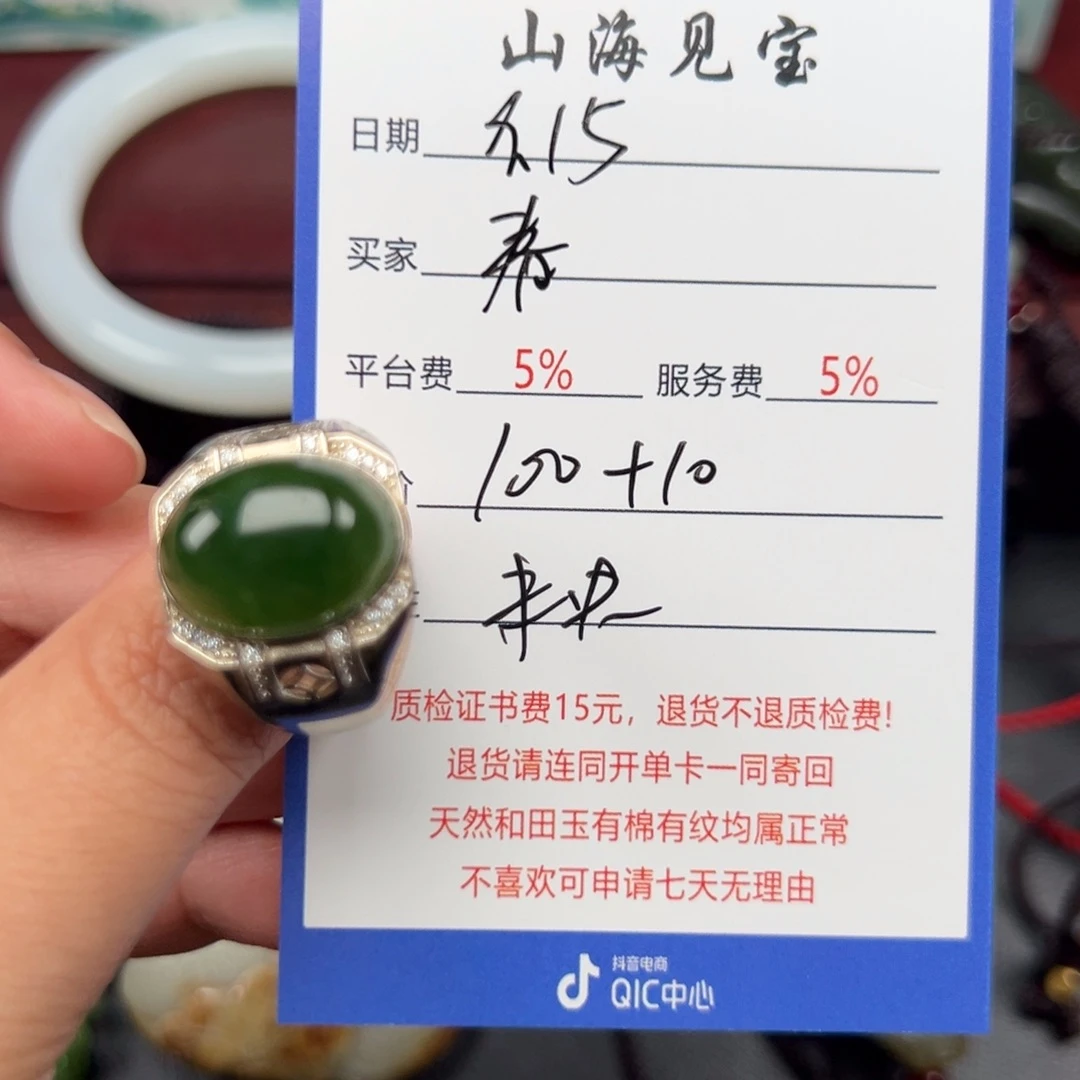 山海见宝
日期 15
买家
平台费 5% 服务费 5%
100+10
质检证书费15元，退货不退质检费!
退货请连同开单卡一同寄回
天然和田玉有棉有纹均属正常
不喜欢可申请七天无理由
抖音电商
QIC中心